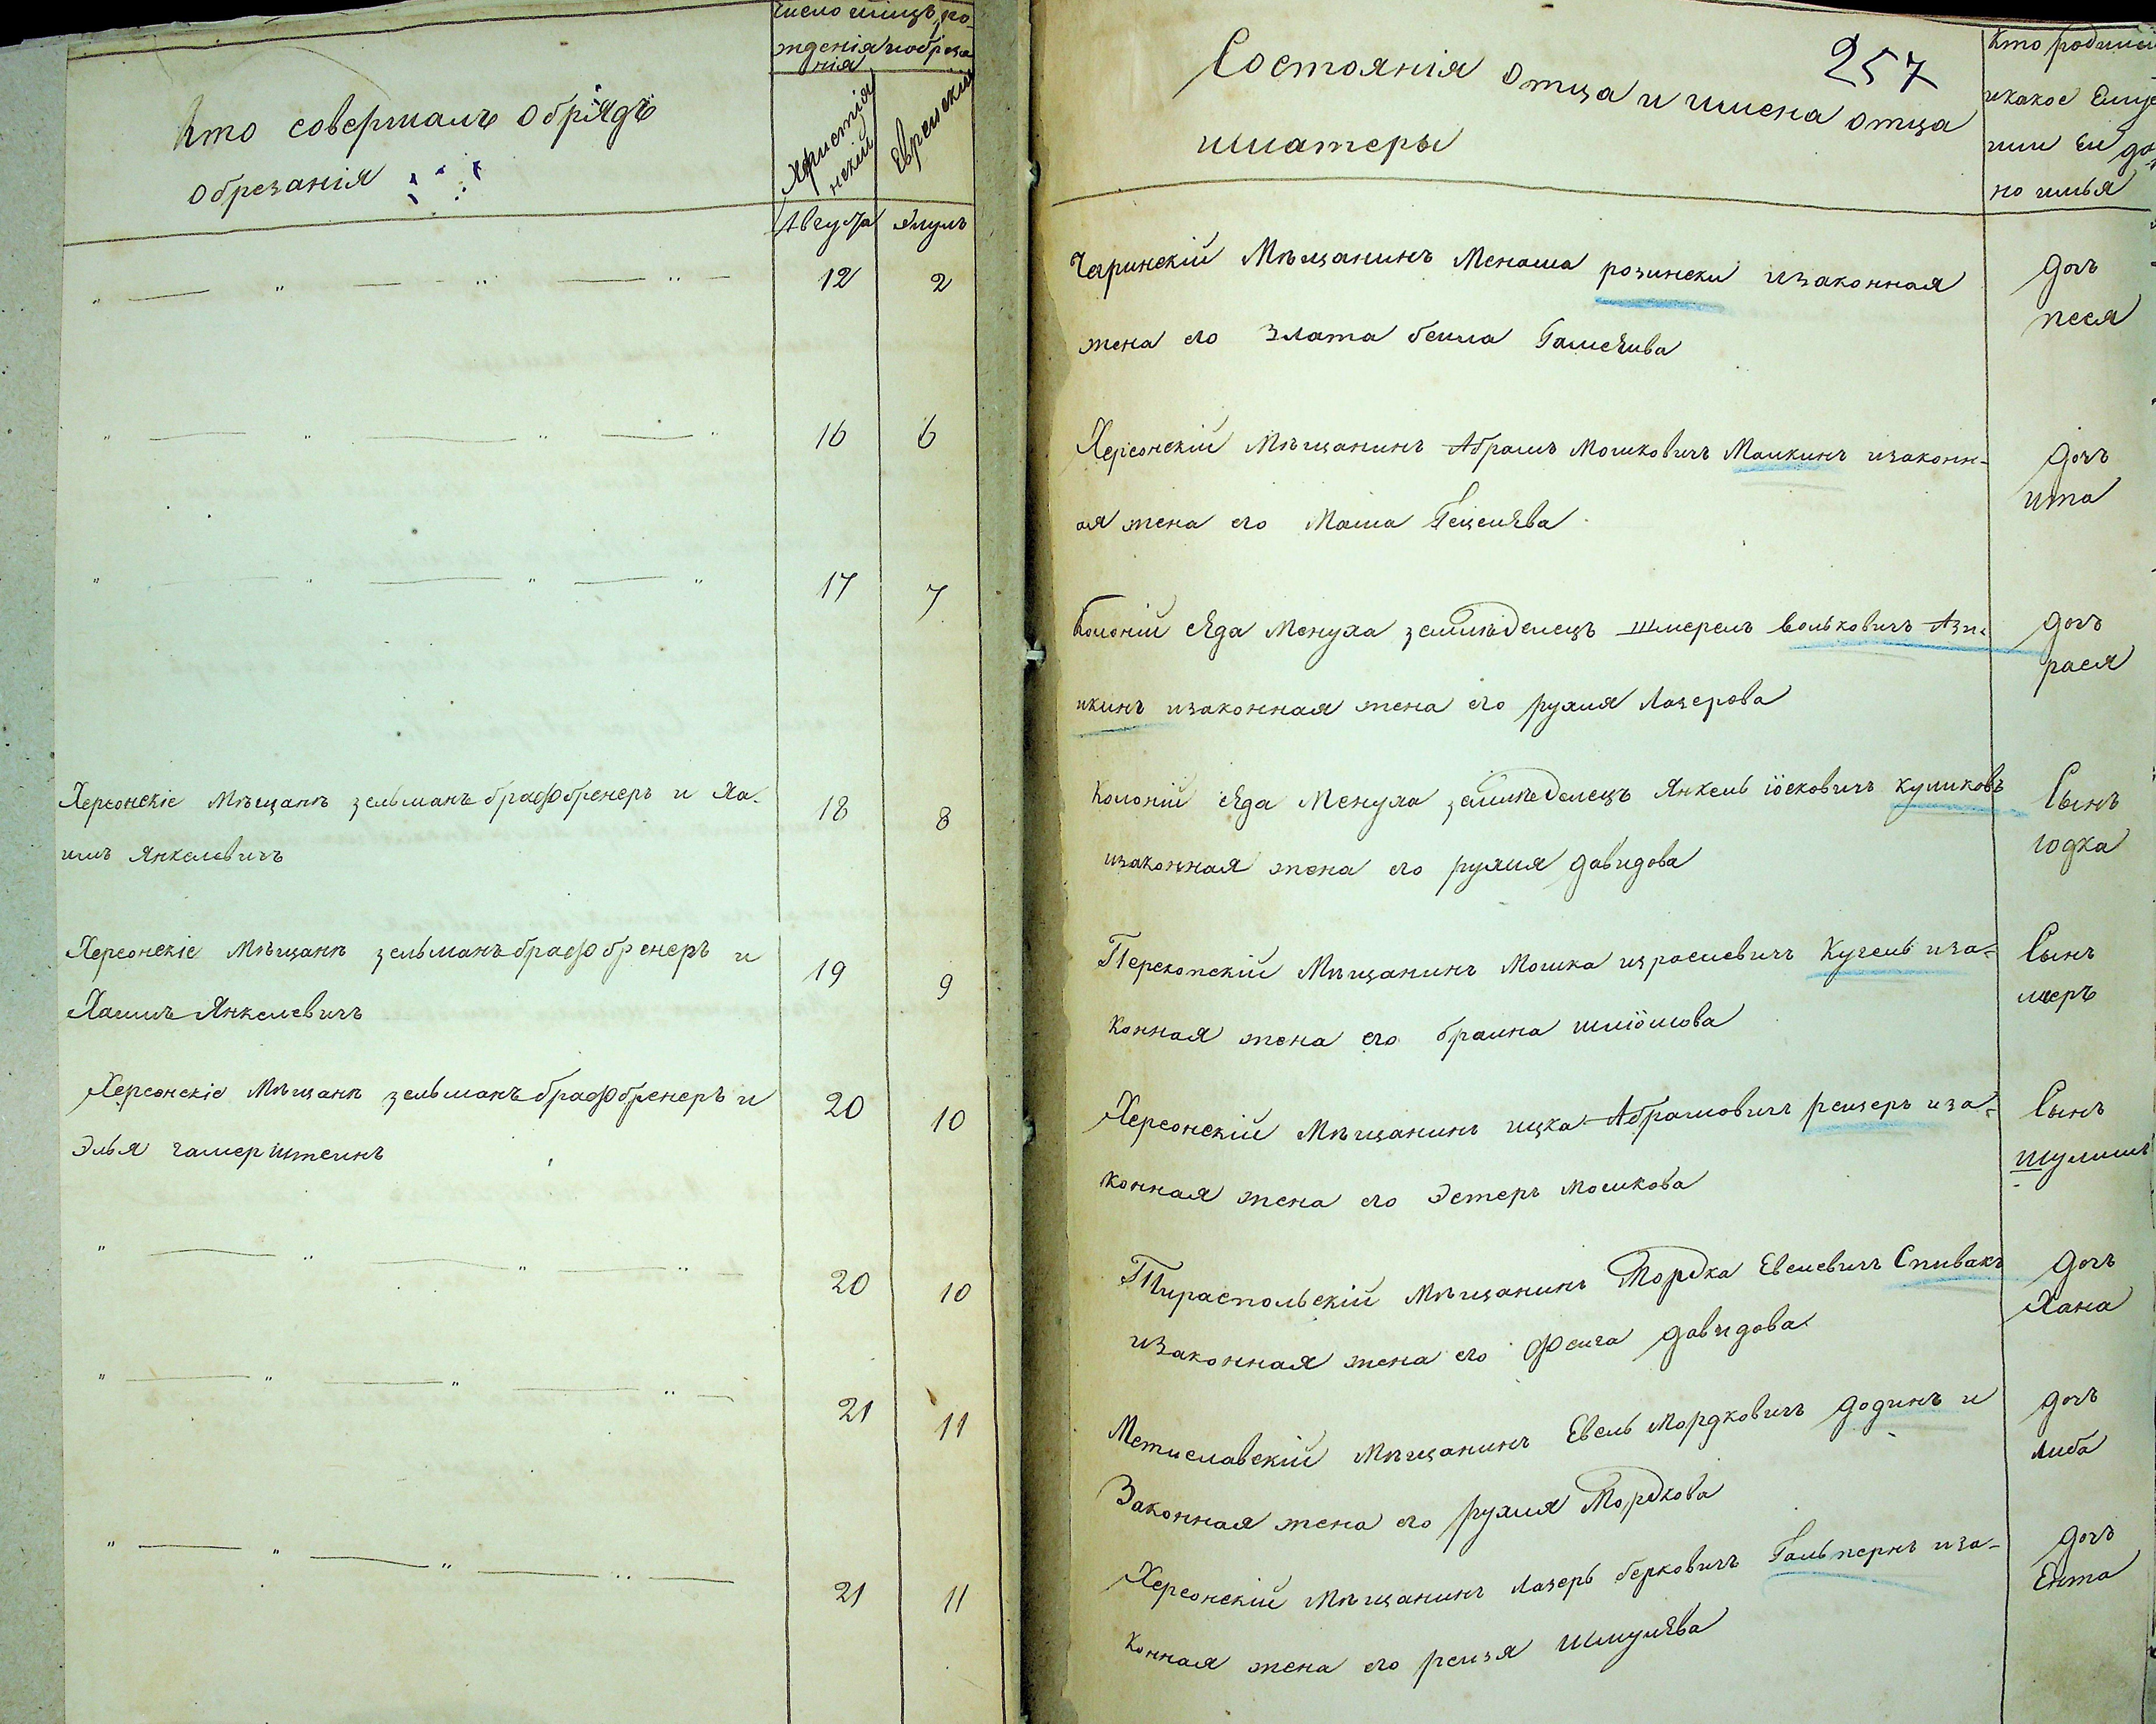 Кто совершалъ обрядъ
обрезанія
Число и мѣсяцъ ро-
жденія и обреза
нія
Христіа
нскій
Еврейскій
Августа
Элулъ
12
2
16
6
17
7
Херсонскіе Мѣщанѣ зельманъ браф бренеръ и Ха-
имъ Янкелевичъ
18
8
Херсонскіе Мѣщанѣ зельманъ браф бренеръ и
Хаимъ Янкелевичъ
19
9
Херсонскіе Мѣщанѣ зельманъ браф бренеръ и
Элья гамерштеинъ
20
10
20
10
21
11
21
11
257
Состоянія отца и имена отца
и матеры
Кто родился
и какое Ему
или Ей да
но имья
Мѣщанинъ Менаша розински и законная
жена его Злата беила
дочь
песя
Херсонскій Мѣщанинъ Абрамъ Мошковичъ Малкинъ и законн-
ая жена его Маша
дочъ
ита
Колоніи сѣда Менуха земледелецъ Шмерелъ Вольковичъ Ази-
икинъ и законная жена его рухля Лазерова
дочь
рася
Колоніи сѣда Менуха земледелецъ Янкель іосковичъ Кушковъ
и законная жена его рухля давидова
Сынъ
юдка
Перекопскій Мѣщанинъ Мошка израелевичъ Кугель и за-
конная жена его браина шліомова
Сынъ
мееръ
Херсонскій Мѣщанинъ ицка Абрамовичъ рейзеръ и за-
конная жена его Эстеръ мошкова
Сынъ
шулимъ
Тираспольскій Мѣщанинъ Мордка Евелевичъ Спивакъ
и законная жена его Фейга давидова
дочъ
Хана
Мстиславскій Мѣщанинъ Евель мордковичъ додинъ и
Законная жена его рухля Мордкова
дочъ
либа
Херсонскій Мѣщанинъ лазеръ берковичъ Гальпернъ и за-
конная жена его рейзя шмулева
дочъ
Ента